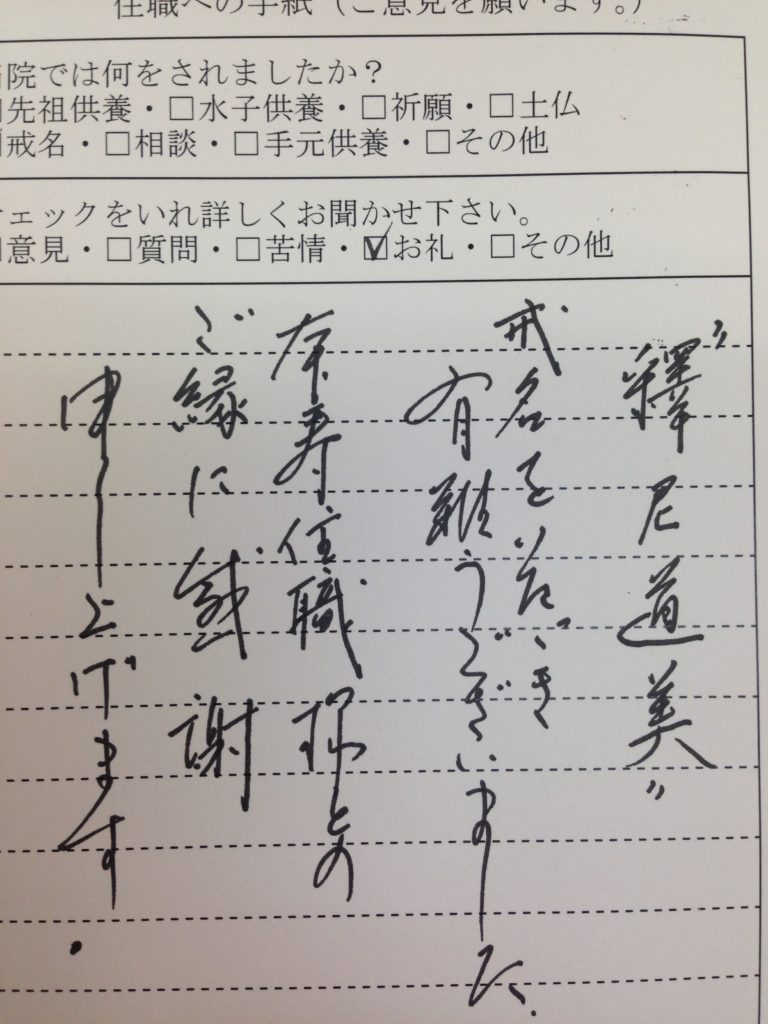 住職への手紙(ご意見を願います。)
院では何をされましたか?
先祖供養・□水子供養・□祈願・□土仏
戒名・□相談・□手元供養・□その他
ェックをいれ詳しくお聞かせ下さい。
意見・□質問・□苦情・☑お礼・□その他
〝釋尼道美〟
戒名をいただき
有難うございました.
住職様との
ご縁に感謝
申し上げます.